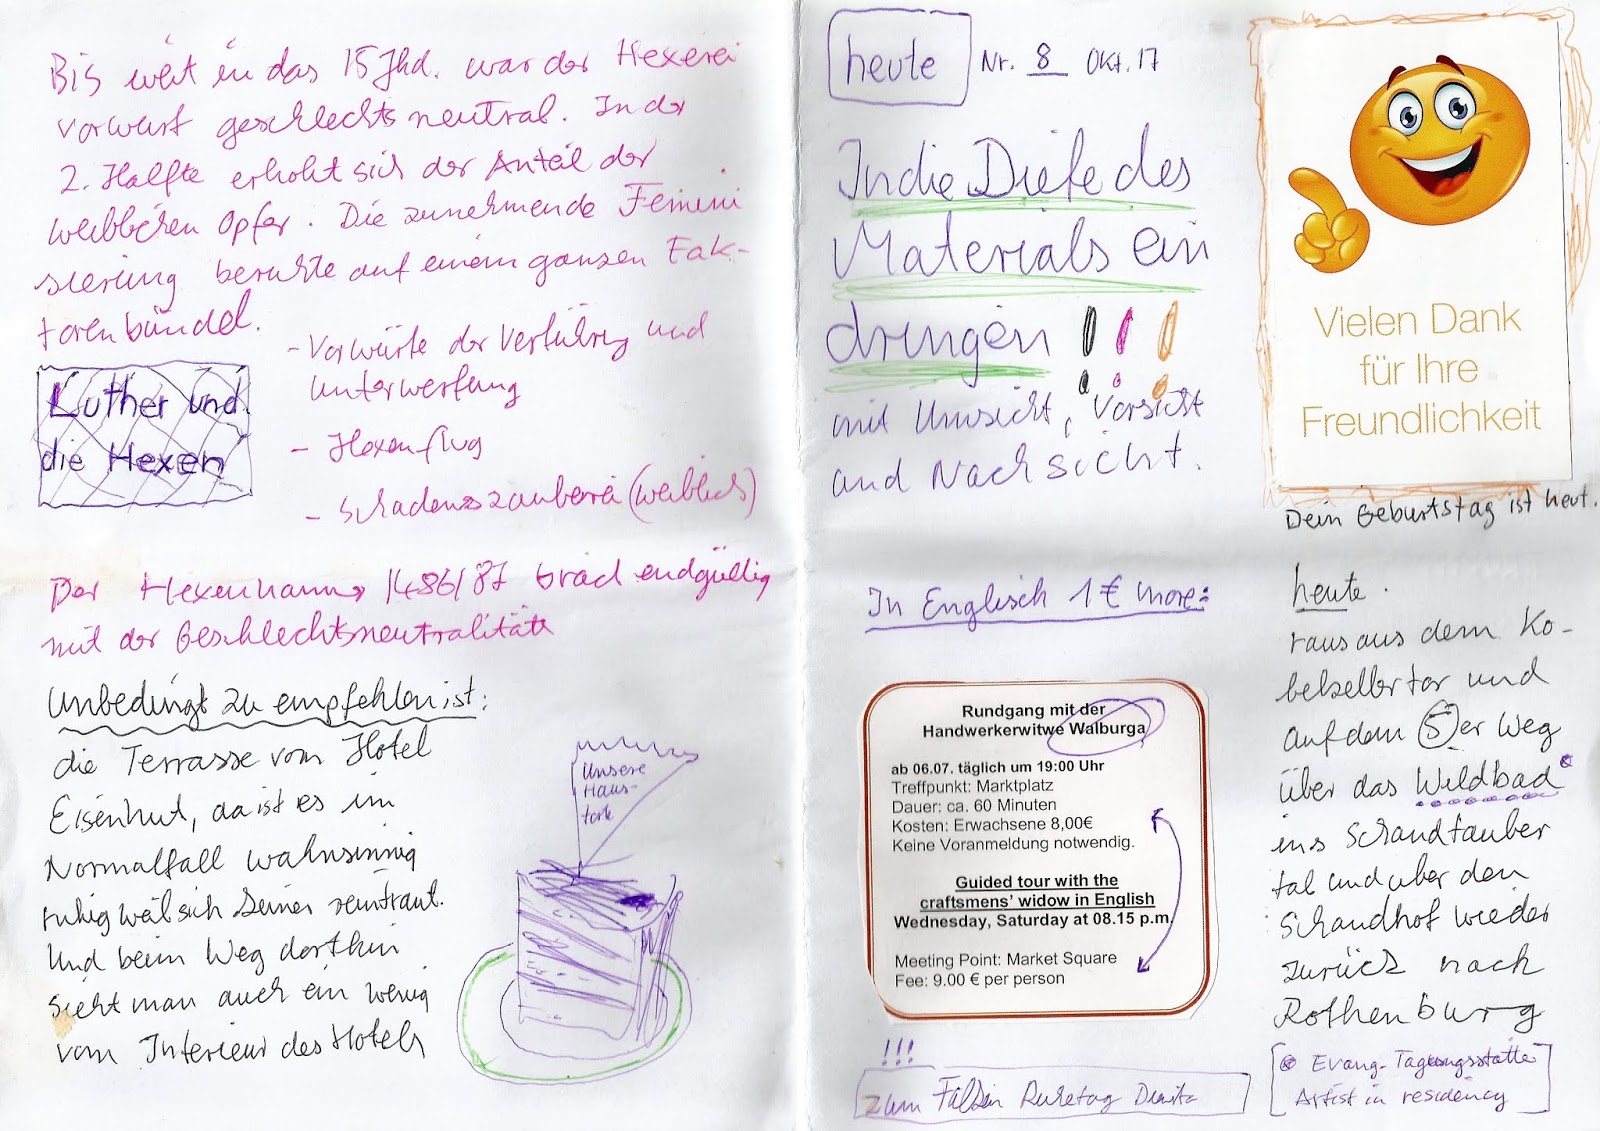 Bis weit in das 15 Jhd. war der Hexerei
vorwurf geschlechtsneutral. In der
2. Hälfte erhöht sich der Anteil der
weiblichen Opfer. Die zunehmende Femini
sierung beruhte auf einem ganzen Fak-
torenbündel.
- Vorwürfe der Verführung und
Unterwerfung
- Hexenflug
- Schadenszauberei (weiblich)
Luther und
die Hexen
Der Hexenhammer 1486/87 brach endgültig
mit der Geschlechtsneutralität
Unbedingt zu empfehlen ist:
die Terrasse vom Hotel
Eisenhut, da ist es im
Normalfall wahnsinnig
ruhig weil sich keiner reintraut.
Und beim Weg dorthin
sieht man auch ein wenig
vom Interieur des Hotels
Unsere
Haus-
torte
heute Nr. 8 Okt. 17
In die Diefe des
Materials ein
dringen !!!
mit Umsicht, Vorsicht
und Nachsicht.
Vielen Dank
für Ihre
Freundlichkeit
Dein Geburtstag ist heut.
In Englisch 1 € more:
Rundgang mit der
Handwerkerwitwe Walburga
ab 06.07. täglich um 19:00 Uhr
Treffpunkt: Marktplatz
Dauer: ca. 60 Minuten
Kosten: Erwachsene 8,00€
Keine Voranmeldung notwendig.
Guided tour with the
craftsmens' widow in English
Wednesday, Saturday at 08.15 p.m.
Meeting Point: Market Square
Fee: 9.00 € per person
!!!
Zum Ruhetag
heute.
raus aus dem Ko-
belzellertor und
auf dem 5er Weg
über das Wildbad*
ins Schandtauber
tal und über den
Schandhof wieder
zurück nach
Rothenburg
* Evang. Tagungsstätte
Artist in residency